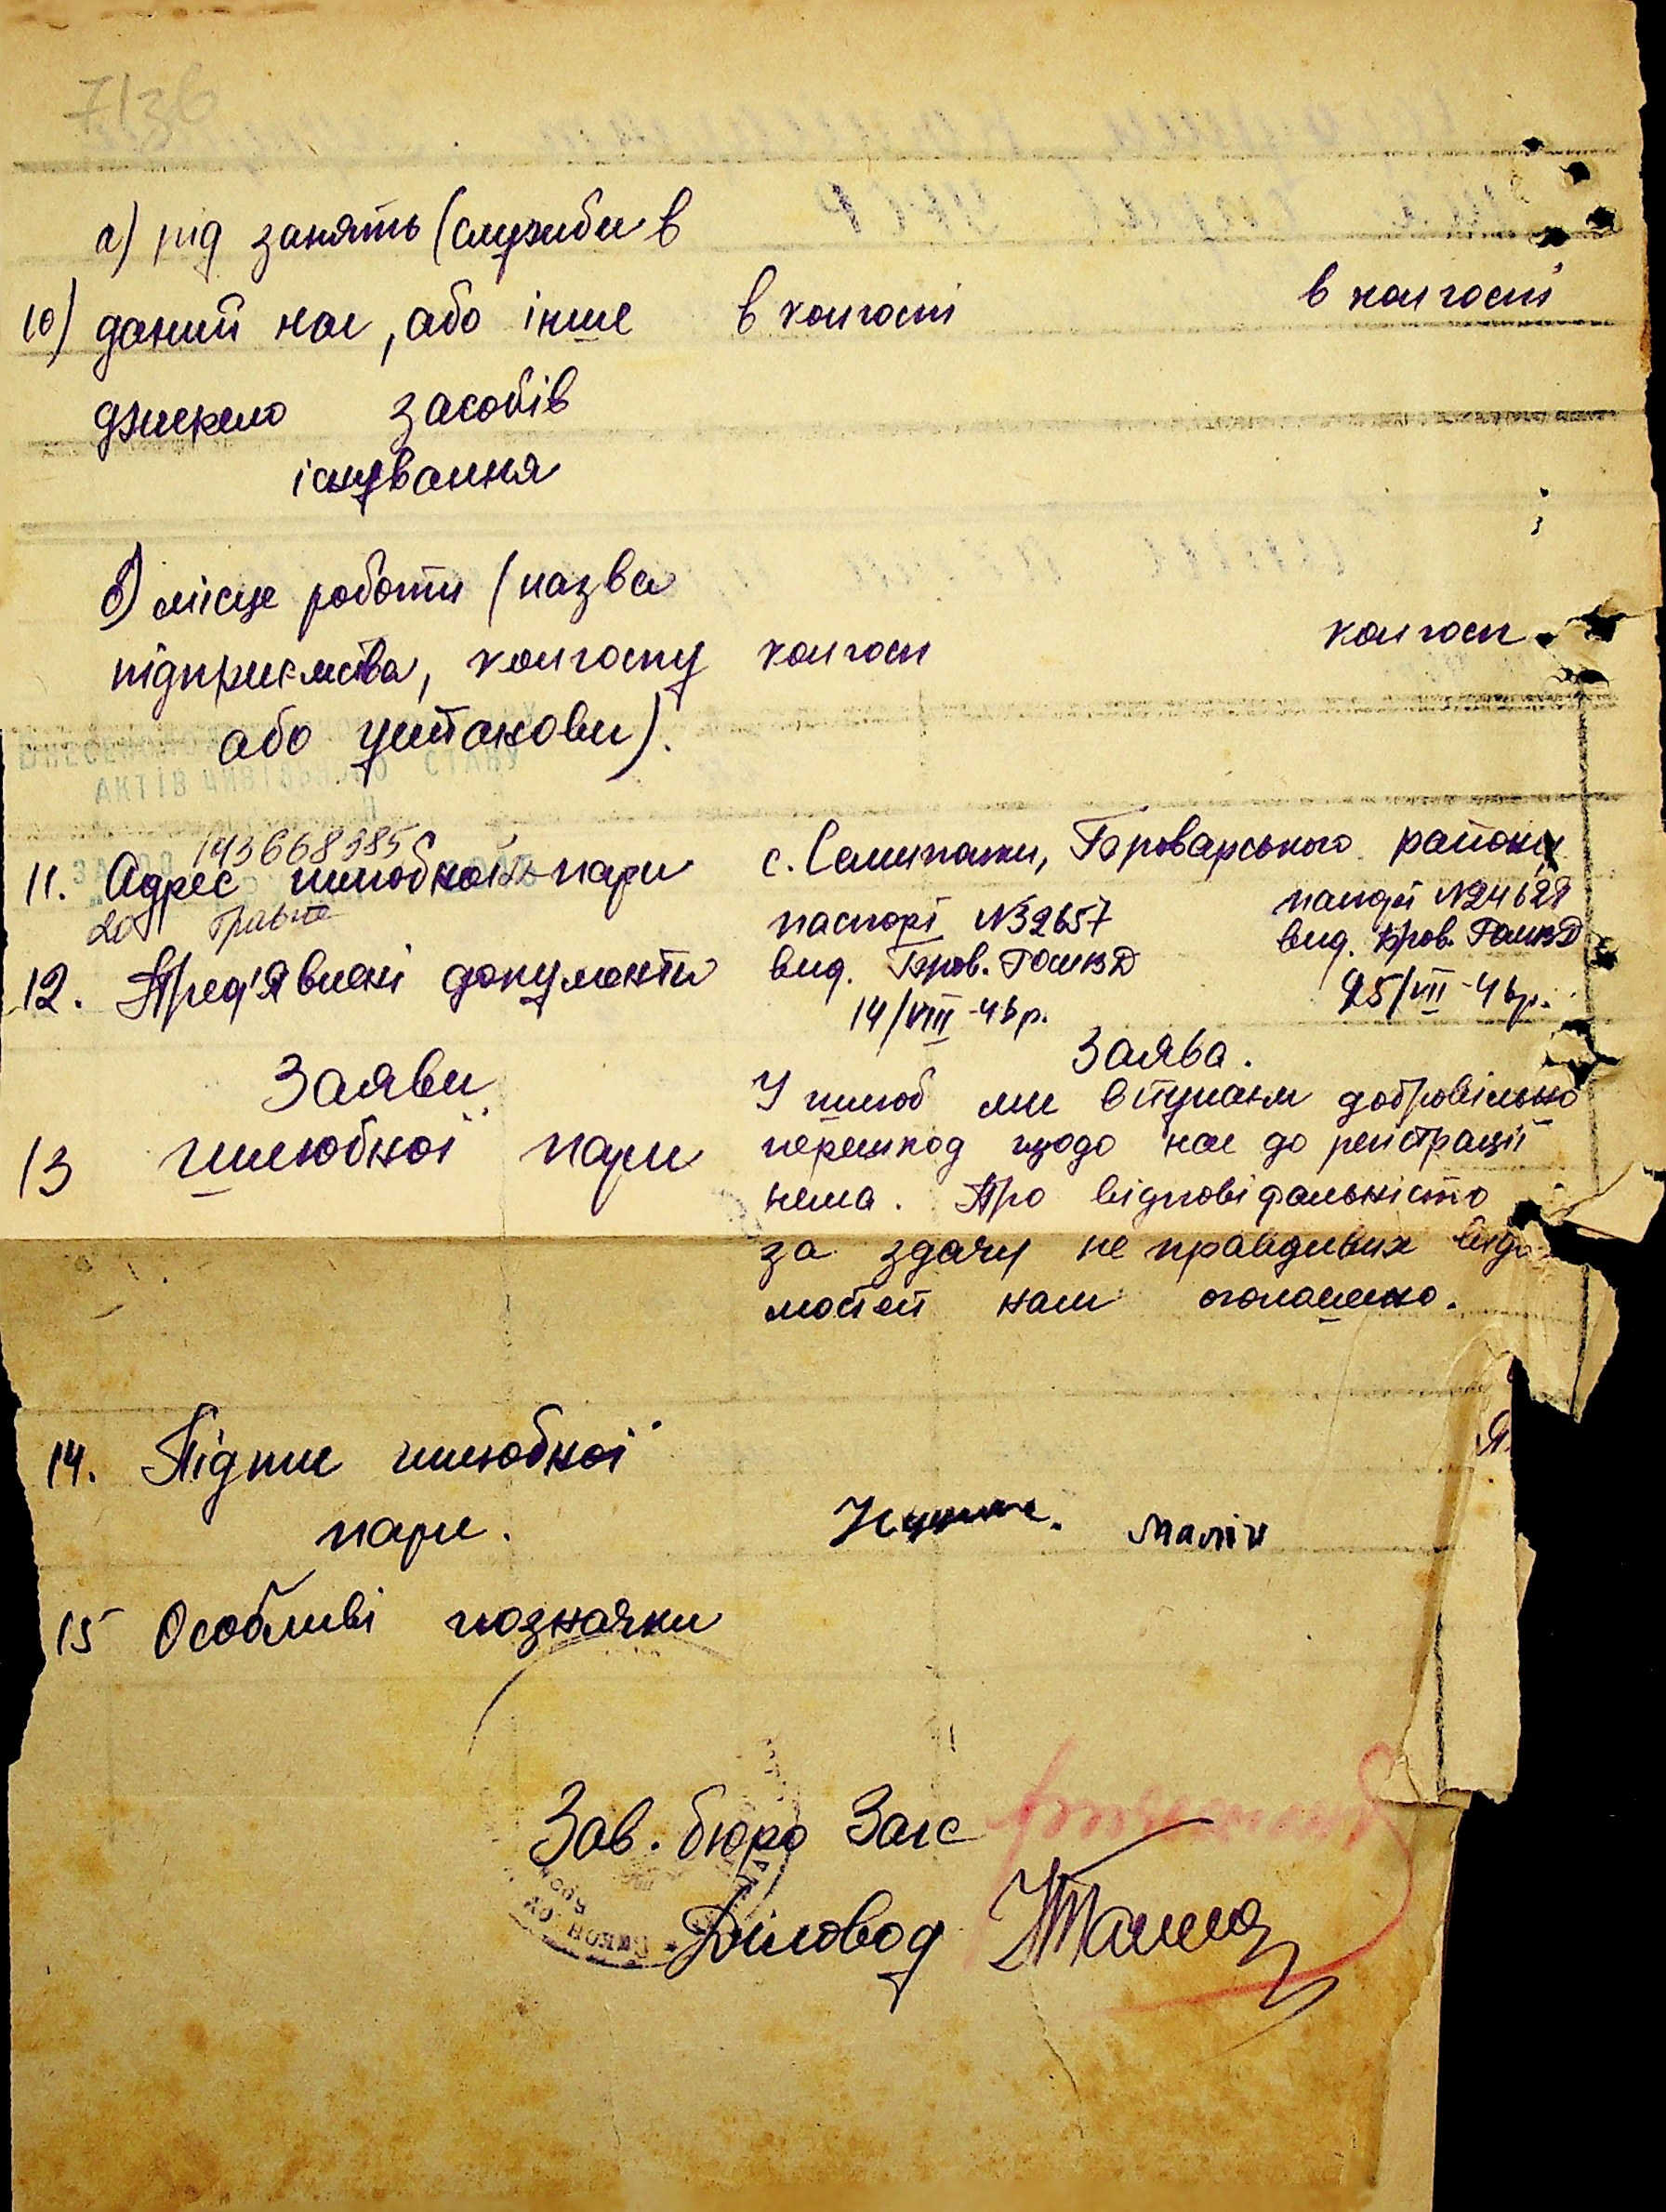 а) рід занять (служби в
10) даний час, або інше в колгоспі в колгоспі
джерело засобів
існування
б) місце роботи (назва
підприємства, колгоспу колгосп колгосп
або установи).
АКТІВ ЦИВІЛЬНОГО СТАНУ
11. Адрес шлюбної пари с. Семиполки, Броварського району
20 травня
паспорт №32657
12. Пред'явлені документи вид. Бров.
14/VIII-46р. 25/VII-46р.
Заява.
Заяви У шлюб ми вступаєм добровільно
13 шлюбної пари перешкод щодо нас до реєстрації
нема. Про відповідальність
за здачу не правдивих відо
мостей нам оголошено.
14. Підпис шлюбної
пари.
Маліч
15 Особливі позначки
Зав. бюро Загс
Діловод